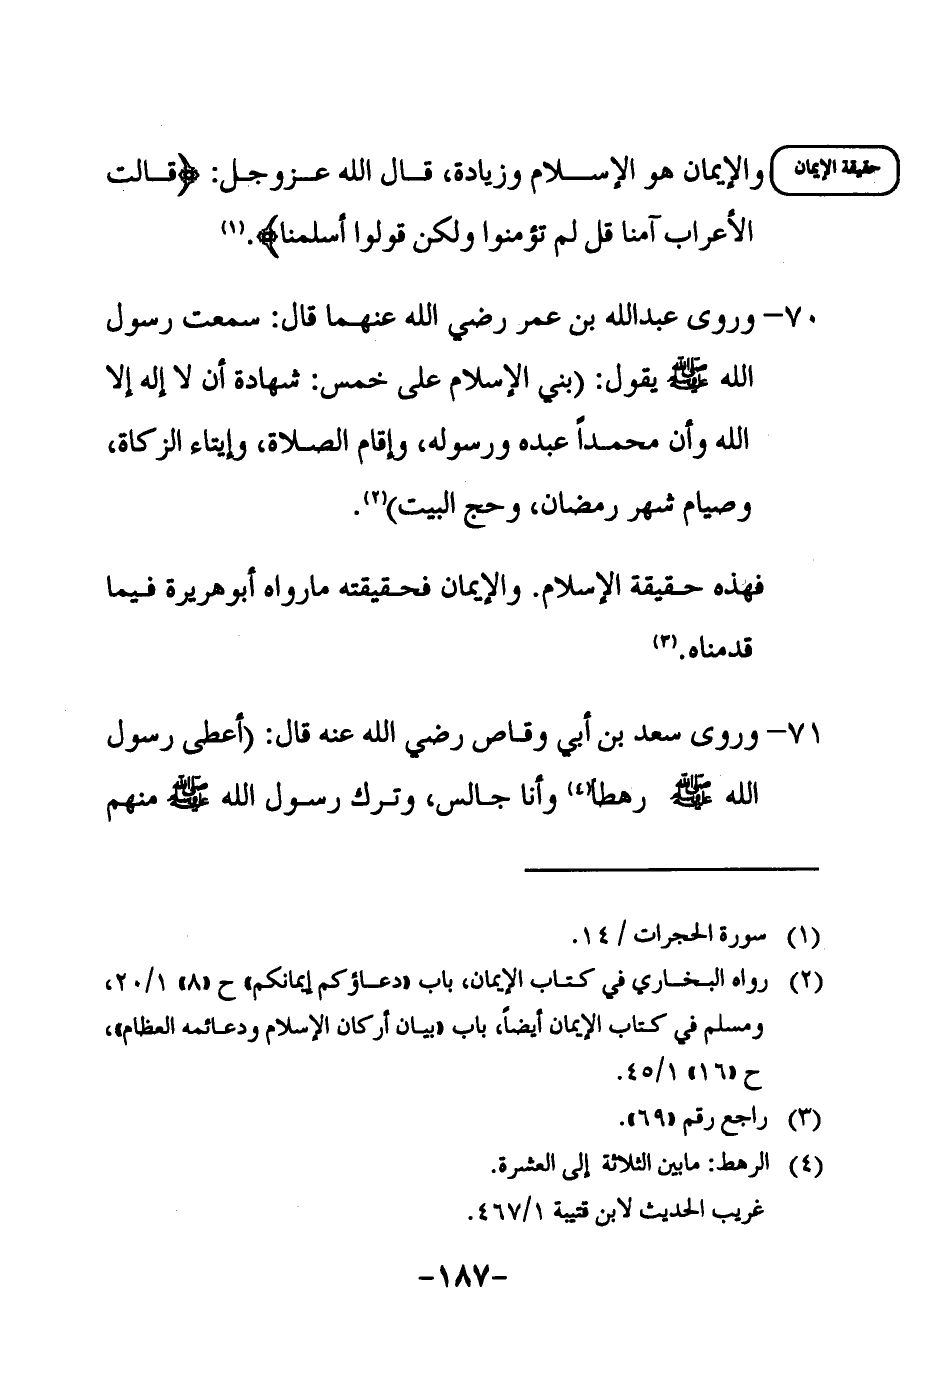 حقيقة الإيمان
والإيمان هو الإسلام وزيادة، قال الله عزوجل: ﴿قالت
الأعراب آمنا قل لم تؤمنوا ولكن قولوا أسلمنا﴾.(١)
٧٠- وروى عبدالله بن عمر رضي الله عنهما قال: سمعت رسول
الله ﷺ يقول: (بني الإسلام على خمس: شهادة أن لا إله إلا
الله وأن محمداً عبده ورسوله، وإقام الصلاة، وإيتاء الزكاة،
وصيام شهر رمضان، وحج البيت)(٢).
فهذه حقيقة الإسلام. والإيمان فحقيقته مارواه أبوهريرة فيما
قدمناه.(٣)
٧١- وروى سعد بن أبي وقاص رضي الله عنه قال: (أعطى رسول
الله ﷺ رهطاً(٤) وأنا جالس، وترك رسول الله ﷺ منهم
(١) سورة الحجرات / ١٤.
(٢) رواه البخاري في كتاب الإيمان، باب «دعاؤكم إيمانكم» ح «٨» ٢٠/١،
ومسلم في كتاب الإيمان أيضاً، باب «بيان أركان الإسلام ودعائمه العظام»،
ح «١٦» ٤٥/١.
(٣) راجع رقم «٦٩».
(٤) الرهط: مابين الثلاثة إلى العشرة.
غريب الحديث لابن قتيبة ٤٦٧/١.
-١٨٧-